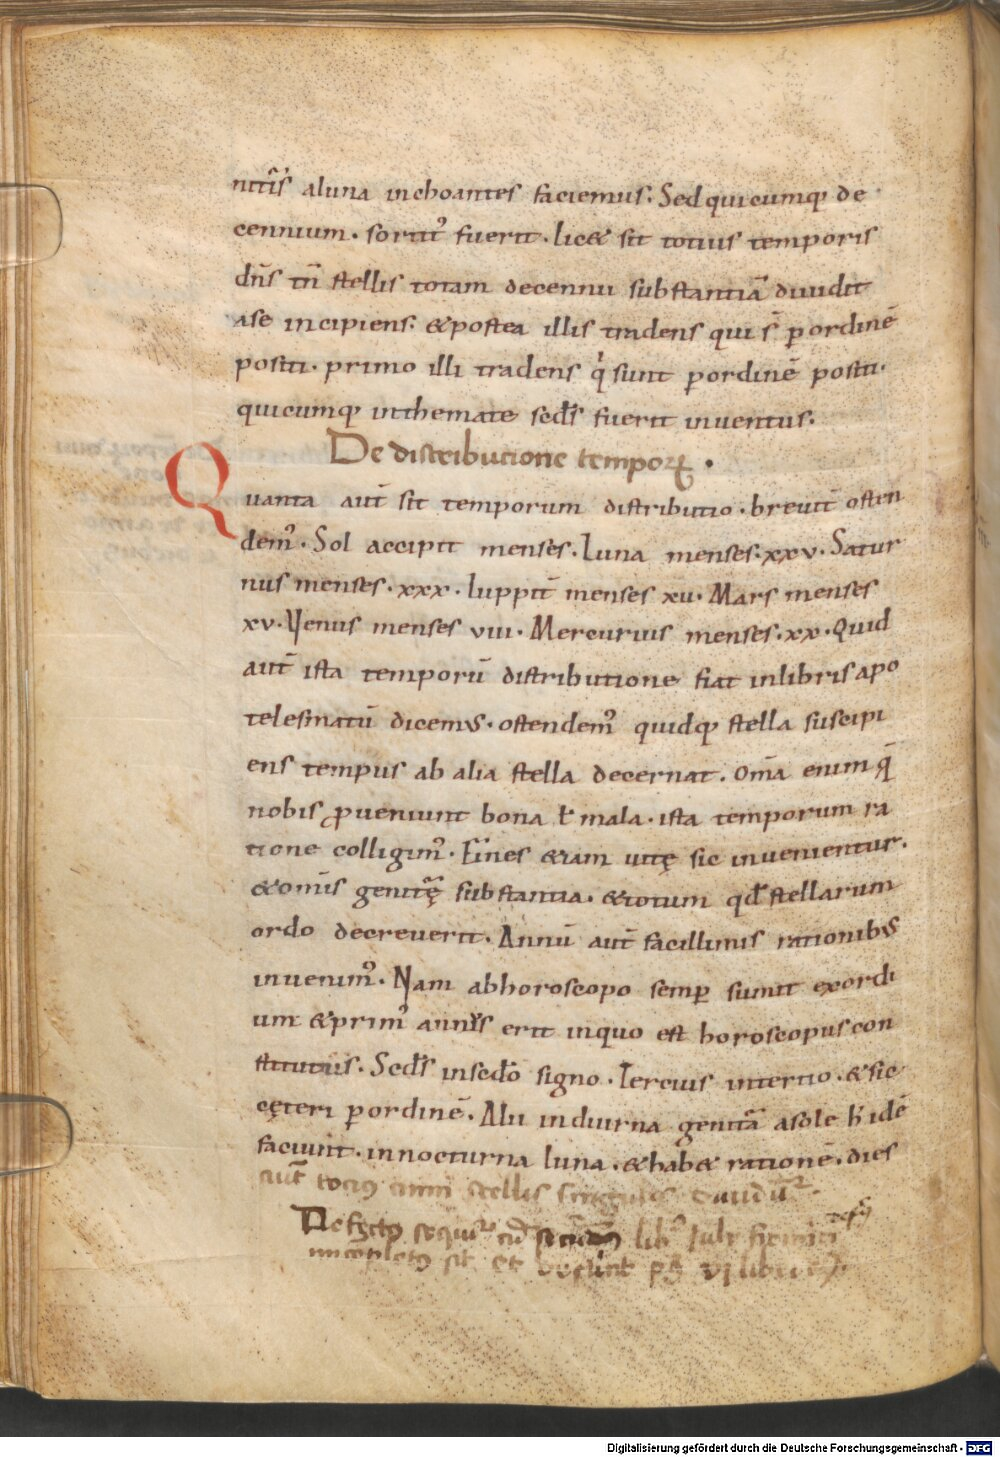 ntis̄ aluna inchoantes faciemus. Sed quicumq; de
cennium. sortit᷒ fuerit. lic& sit totius temporis
dn̄s tn̄ stellis totam decennii substantiā diuidit
ase incipiens. &postea illis tradens qui s̄ p̱ordinē
positi. primo illi tradens q̇ sunt p̱ordinē positi.
quicumq; inthemate scd̄s fuerit inuentus.
De distributione temporꝝ.
Quanta aut̄ sit temporum distributio. breuit̄ osten
dem᷒. Sol accipit menses. Luna menses. xxv. Satur
nus menses. xxx. Iuppit̄ menses xii. Mars menses
xv. Venus menses viii. Mercurius menses. xx. Quid
aut̄ ista temporū distributione fiat inlibris apo
telesmatū dicem᷒. ostendem᷒ quidq; stella suscipi
ens tempus ab alia stella decernat. om̄a enim q̄
nobis ꝓueniunt bona ł mala. ista temporum ra
tione colligim᷒. Fines &iam uitę sic inuenientur.
&om̄is genitꝭę substantia. &totum qd̄ stellarum
ordo decreuerit. Annū aut̄ facillimis rationib᷒
inuenim᷒. Nam abhoroscopo semp̱ sumit exordi
um &prim᷒ annis erit inquo est horoscopus con
stitutus. Scd̄s inscdo signo. Tercius intertio. &sic
cęteri p̱ordinē. Alii indiurna genitā asole h̄ idē
faciunt. innocturna luna. &hab& rationē. dies
aut̄ toci᷒ anni stellis singulis diuidūt᷒.
Defect᷒ sequit᷒ lib᷒ Iulii firmici
incoplet᷒ sit et